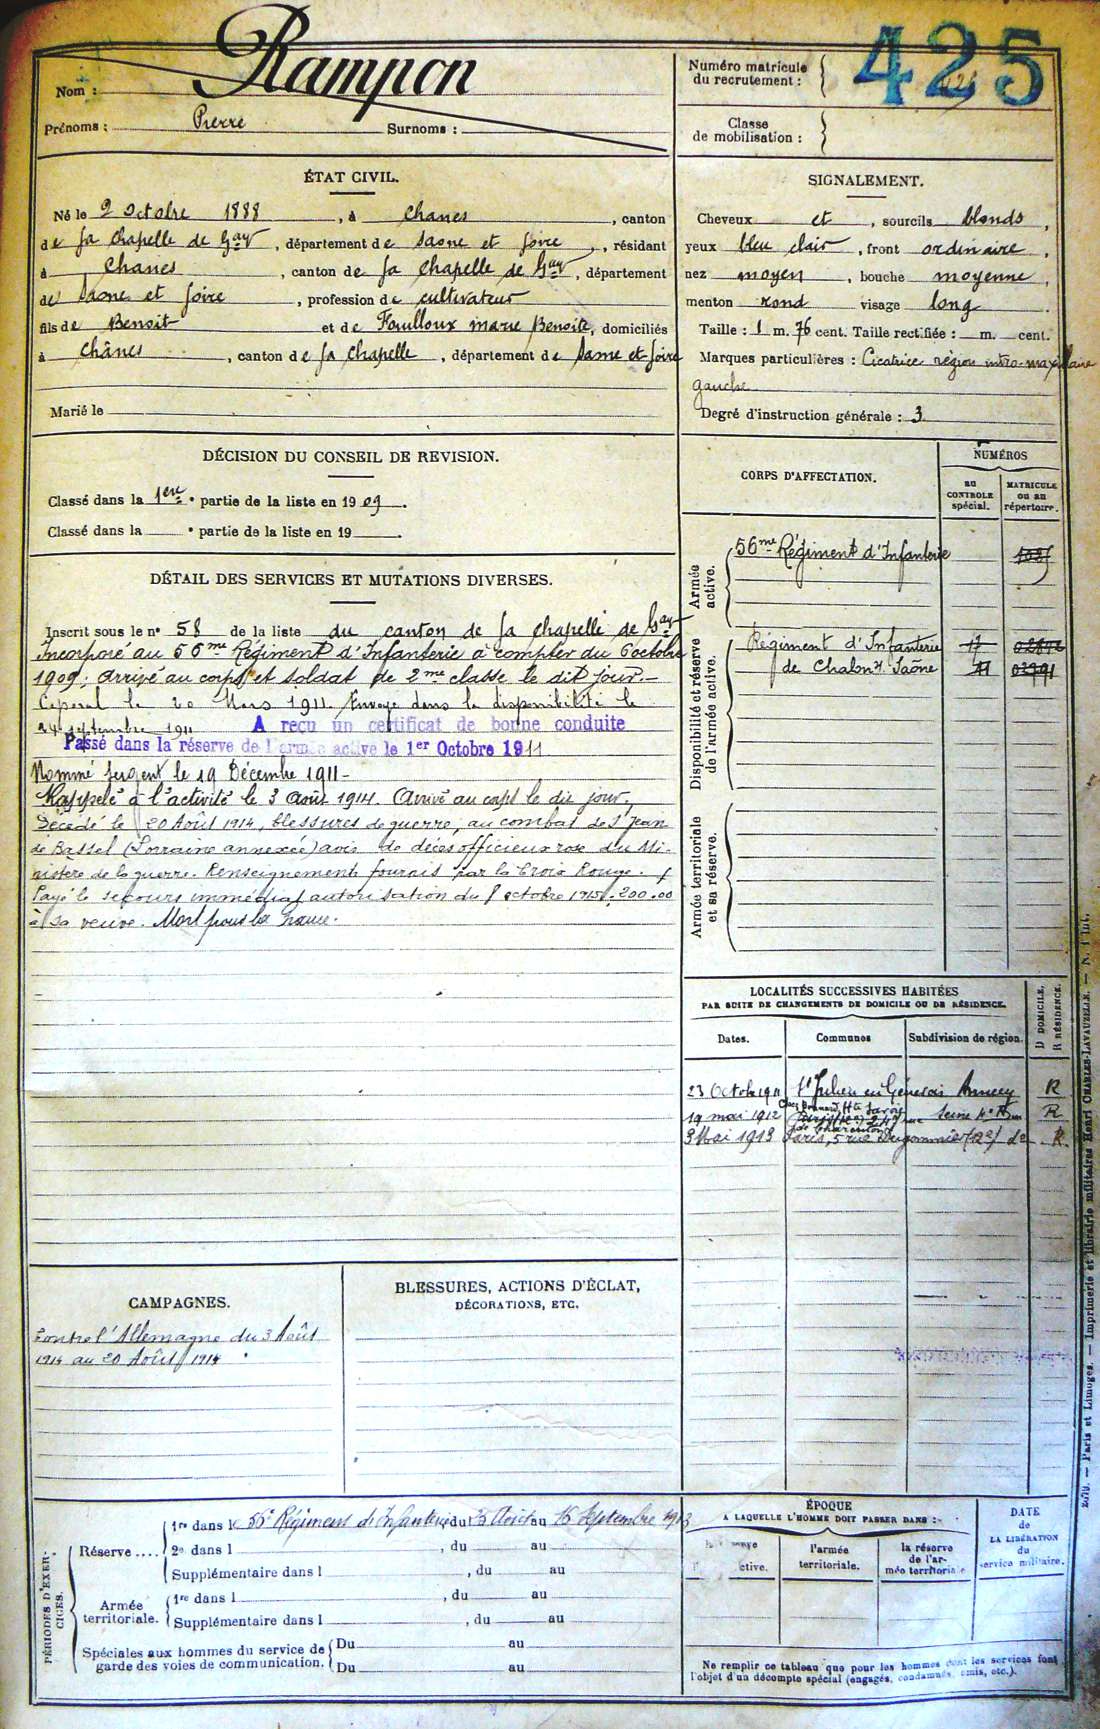 Nom : Rampon
Prénoms : Pierre Surnoms :
Numéro matricule
du recrutement :
425
Classe
de mobilisation :
ÉTAT CIVIL.
Né le 2 Octobre 1888, à Chanes, canton
de la Chapelle de Gay, département de Saone et Loire, résidant
à Chanes, canton de la Chapelle de Gay, département
de Saone et Loire, profession de cultivateur
fils de Benoit et de Fouilloux marie Benoite, domiciliés
à Chânes, canton de la Chapelle, département de Saone et Loire
Marié le
SIGNALEMENT.
Cheveux et, sourcils blonds,
yeux bleu clair, front ordinaire,
nez moyen, bouche moyenne,
menton rond visage long
Taille : 1 m. 76 cent. Taille rectifiée : m. cent.
Marques particulières : Cicatrice région
gauche
Degré d'instruction générale : 3
DÉCISION DU CONSEIL DE REVISION.
Classé dans la 1ere partie de la liste en 1909.
Classé dans la e partie de la liste en 19 .
CORPS D'AFFECTATION.
NUMÉROS
au
CONTROLE
spécial.
MATRICULE
ou au
répertoire.
Armée
active.
56me Régiment d'Infanterie
Disponibilité et réserve
de l'Armée active.
Régiment d'Infanterie
de Chalon s. Saône
Armée territoriale
et sa réserve.
DÉTAIL DES SERVICES ET MUTATIONS DIVERSES.
Inscrit sous le no 58 de la liste du canton de la Chapelle de Gay
Incorporé au 56me Régiment d'Infanterie à compter du 6 octobre
1909. arrivé au corps et soldat de 2me classe le dit jour.-
Caporal le 20 Mars 1911. Envoyé dans la disponibilité le
24 septembre 1911 A reçu un certificat de bonne conduite
Passé dans la réserve de l'armée active le 1er Octobre 1911
Nommé Sergent le 19 Décembre 1911-
Rappelé à l'activité le 3 août 1914. Arrivé au corps le dit jour.
Décédé le 20 Août 1914, blessures de guerre, au combat de St Jean
de Bassel (Lorraine annexée) avis de décès officieux rose du Mi-
nistère de la guerre. Renseignements fournis par la Croix Rouge.
Payé le secours immédiat autorisation du 8 octobre 1915. 200.00
à sa veuve. Mort pour la France.
LOCALITÉS SUCCESSIVES HABITÉES
PAR SUITE DE CHANGEMENTS DE DOMICILE OU DE RÉSIDENCE.
D DOMICILE.
R RÉSIDENCE.
Dates. Communes Subdivision de région.
23 Octobre 1911 St Julien en Génevois Annecy R
Hte Savoie
19 mai 1912 Paris 247 rue Seine R
de Charenton
3 Mai 1913 Paris, 5 rue Dugommier (12e) do R.
CAMPAGNES.
Contre l'Allemagne du 3 Août
1914 au 20 Août 1914
BLESSURES, ACTIONS D'ÉCLAT,
DÉCORATIONS, ETC.
PÉRIODES D'EXER-
CICES.
Réserve ....
1re dans le 56e Régiment d'Infanterie, du Août au 16 Septembre 1913
2e dans l , du au
Supplémentaire dans l , du au
Armée
territoriale.
1re dans l , du au
Supplémentaire dans l , du au
Spéciales aux hommes du service de
garde des voies de communication.
Du au
Du au
ÉPOQUE
A LAQUELLE L'HOMME DOIT PASSER DANS :
active.
l'armée
territoriale.
la réserve
de l'ar-
mée territoriale
DATE
de
LA LIBÉRATION
du
service militaire.
Ne remplir ce tableau que pour les hommes dont les services font
l'objet d'un décompte spécial (engagés, condamnés, omis, etc.).
Paris et Limoges. — Imprimerie et librairie militaires Henri CHARLES-LAVAUZELLE. —